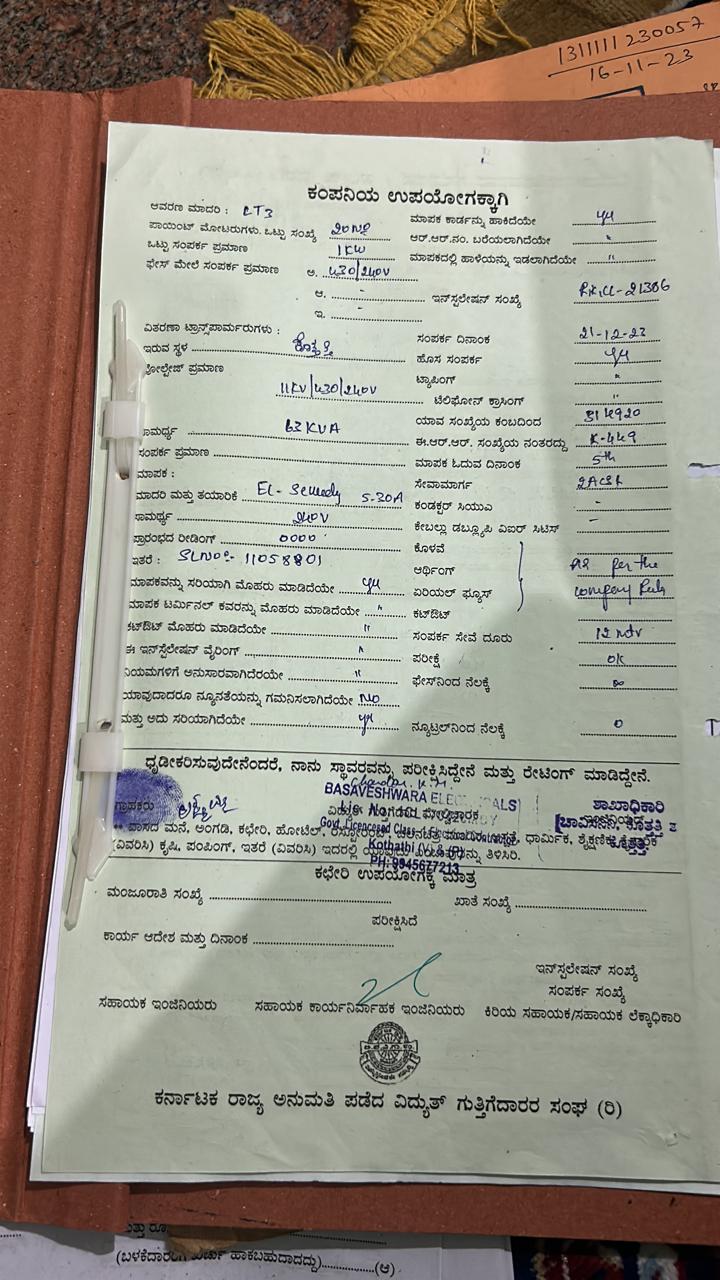 1311111 230057
16-11-23
ಕಂಪನಿಯ ಉಪಯೋಗಕ್ಕಾಗಿ
ಆವರಣ ಮಾದರಿ : LT3
ಮಾಪಕ ಕಾರ್ಡನ್ನು ಹಾಕಿದೆಯೇ yes
ಪಾಯಿಂಟ್ ಮೋಟರುಗಳು. ಒಟ್ಟು ಸಂಖ್ಯೆ 20 NOS
ಆರ್.ಆರ್.ನಂ. ಬರೆಯಲಾಗಿದೆಯೇ "
ಒಟ್ಟು ಸಂಪರ್ಕ ಪ್ರಮಾಣ 1KW
ಮಾಪಕದಲ್ಲಿ ಹಾಳೆಯನ್ನು ಇಡಲಾಗಿದೆಯೇ "
ಫೇಸ್ ಮೇಲೆ ಸಂಪರ್ಕ ಪ್ರಮಾಣ ಅ. 430/240V
ಆ. - ಇನ್‌ಸ್ಟಲೇಷನ್ ಸಂಖ್ಯೆ -21386
ಇ. -
ವಿತರಣಾ ಟ್ರಾನ್ಸ್‌ಪಾರ್ಮರುಗಳು :
ಸಂಪರ್ಕ ದಿನಾಂಕ 21-12-23
ಇರುವ ಸ್ಥಳ ಕೊತ್ತತ್ತಿ
ಹೊಸ ಸಂಪರ್ಕ yes
ವೋಲ್ಟೇಜ್ ಪ್ರಮಾಣ
ಟ್ಯಾಪಿಂಗ್ "
11KV/430/240V
ಟೆಲಿಫೋನ್ ಕ್ರಾಸಿಂಗ್ "
ಯಾವ ಸಂಖ್ಯೆಯ ಕಂಬದಿಂದ 314920
ಸಾಮರ್ಥ್ಯ 63 KVA
ಈ.ಆರ್.ಆರ್. ಸಂಖ್ಯೆಯ ನಂತರದ್ದು K-449
ಸಂಪರ್ಕ ಪ್ರಮಾಣ
ಮಾಪಕ ಓದುವ ದಿನಾಂಕ 5th
ಮಾಪಕ :
ಸೇವಾಮಾರ್ಗ
ಮಾದರಿ ಮತ್ತು ತಯಾರಿಕೆ 5-30A
ಕಂಡಕ್ಟರ್ ಸಿಯುವಿ -
ಸಾಮರ್ಥ್ಯ 240V
ಕೇಬಲ್ಲು ಡಬ್ಲ್ಯೂಪಿ ವಿಐರ್ ಸಿಟಿಸ್ -
ಪ್ರಾರಂಭದ ರೀಡಿಂಗ್ 0000
ಕೊಳವೆ
ಇತರೆ : SLNO:- 11058801
ಆರ್ಥಿಂಗ್ As per the
ಮಾಪಕವನ್ನು ಸರಿಯಾಗಿ ಮೊಹರು ಮಾಡಿದೆಯೇ yes
ಏರಿಯಲ್ ಫ್ಯೂಸ್ company Rule
ಮಾಪಕ ಟರ್ಮಿನಲ್ ಕವರನ್ನು ಮೊಹರು ಮಾಡಿದೆಯೇ "
ಕಟ್‌ಔಟ್
ಕಟ್‌ಔಟ್ ಮೊಹರು ಮಾಡಿದೆಯೇ "
ಸಂಪರ್ಕ ಸೇವೆ ದೂರು 12 mtr
ಈ ಇನ್‌ಸ್ಟೆಲೇಷನ್ ವೈರಿಂಗ್ "
ಪರೀಕ್ಷೆ ok
ನಿಯಮಗಳಿಗೆ ಅನುಸಾರವಾಗಿದೆರಯೇ "
ಫೇಸ್‌ನಿಂದ ನೆಲಕ್ಕೆ ∞
ಯಾವುದಾದರೂ ನ್ಯೂನತೆಯನ್ನು ಗಮನಿಸಲಾಗಿದೆಯೇ NO
ಮತ್ತು ಅದು ಸರಿಯಾಗಿದೆಯೇ yes
ನ್ಯೂಟ್ರಲ್‌ನಿಂದ ನೆಲಕ್ಕೆ 0
ಧೃಡೀಕರಿಸುವುದೇನೆಂದರೆ, ನಾನು ಸ್ಥಾವರವನ್ನು ಪರೀಕ್ಷಿಸಿದ್ದೇನೆ ಮತ್ತು ರೇಟಿಂಗ್ ಮಾಡಿದ್ದೇನೆ.
BASAVESHWARA
ಶಾಖಾಧಿಕಾರಿ
ಗ್ರಾಹಕರು
Kothathi (V) & (P)
PH: 9945677213
** ವಾಸದ ಮನೆ, ಅಂಗಡಿ, ಕಛೇರಿ, ಹೋಟೆಲ್, ಧಾರ್ಮಿಕ, ಶೈಕ್ಷಣಿಕ
(ವಿವರಿಸಿ) ಕೃಷಿ, ಪಂಪಿಂಗ್, ಇತರೆ (ವಿವರಿಸಿ) ಇದರಲ್ಲಿ ತಿಳಿಸಿರಿ.
ಕಛೇರಿ ಉಪಯೋಗಕ್ಕೆ ಮಾತ್ರ
ಮಂಜೂರಾತಿ ಸಂಖ್ಯೆ ಖಾತೆ ಸಂಖ್ಯೆ
ಪರೀಕ್ಷಿಸಿದೆ
ಕಾರ್ಯ ಆದೇಶ ಮತ್ತು ದಿನಾಂಕ
ಇನ್‌ಸ್ಟಲೇಶನ್ ಸಂಖ್ಯೆ
ಸಂಪರ್ಕ ಸಂಖ್ಯೆ
ಸಹಾಯಕ ಇಂಜಿನಿಯರು ಸಹಾಯಕ ಕಾರ್ಯನಿರ್ವಾಹಕ ಇಂಜಿನಿಯರು ಕಿರಿಯ ಸಹಾಯಕ/ಸಹಾಯಕ ಲೆಕ್ಕಾಧಿಕಾರಿ
ಕರ್ನಾಟಕ ರಾಜ್ಯ ಅನುಮತಿ ಪಡೆದ ವಿದ್ಯುತ್ ಗುತ್ತಿಗೆದಾರರ ಸಂಘ (ರಿ)
(ಆ)